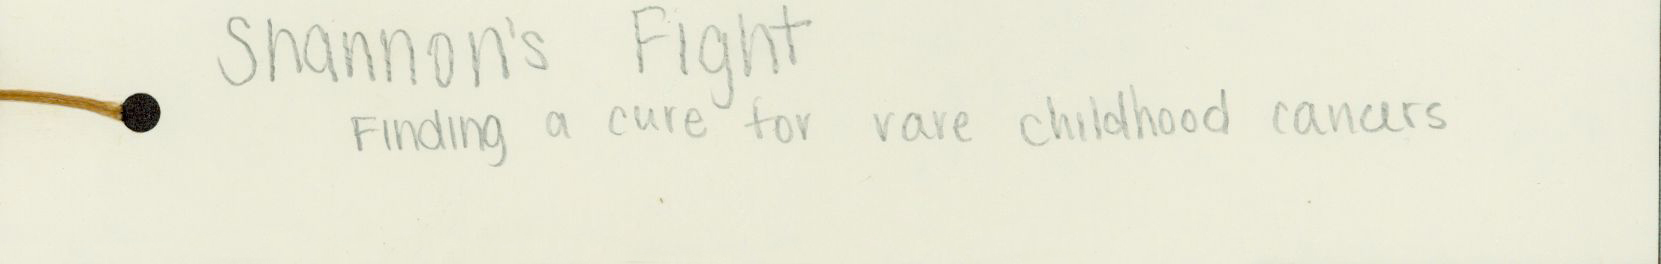 Shannon's Fight
Finding a cure for rare childhood cancers